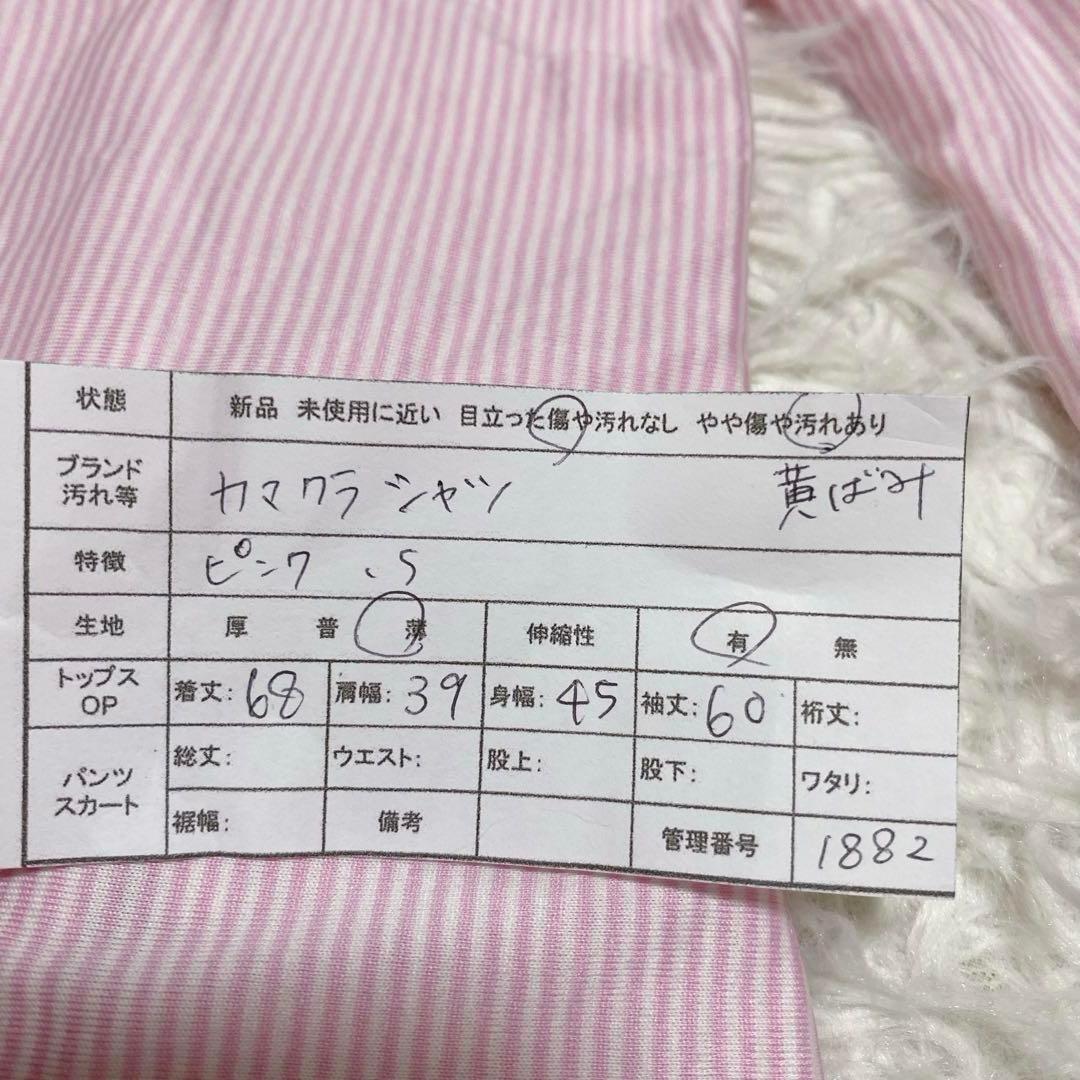 状態 新品 未使用に近い 目立った傷や汚れなし やや傷や汚れあり
ブランド
汚れ等 カマクラシャツ 黄ばみ
特徴 ピンク 、S
生地 厚 普 薄 伸縮性 有 無
トップス
OP 着丈:68 肩幅:39 身幅:45 袖丈:60 裄丈:
パンツ
スカート 総丈: ウエスト: 股上: 股下: ワタリ:
裾幅: 備考 管理番号 1882